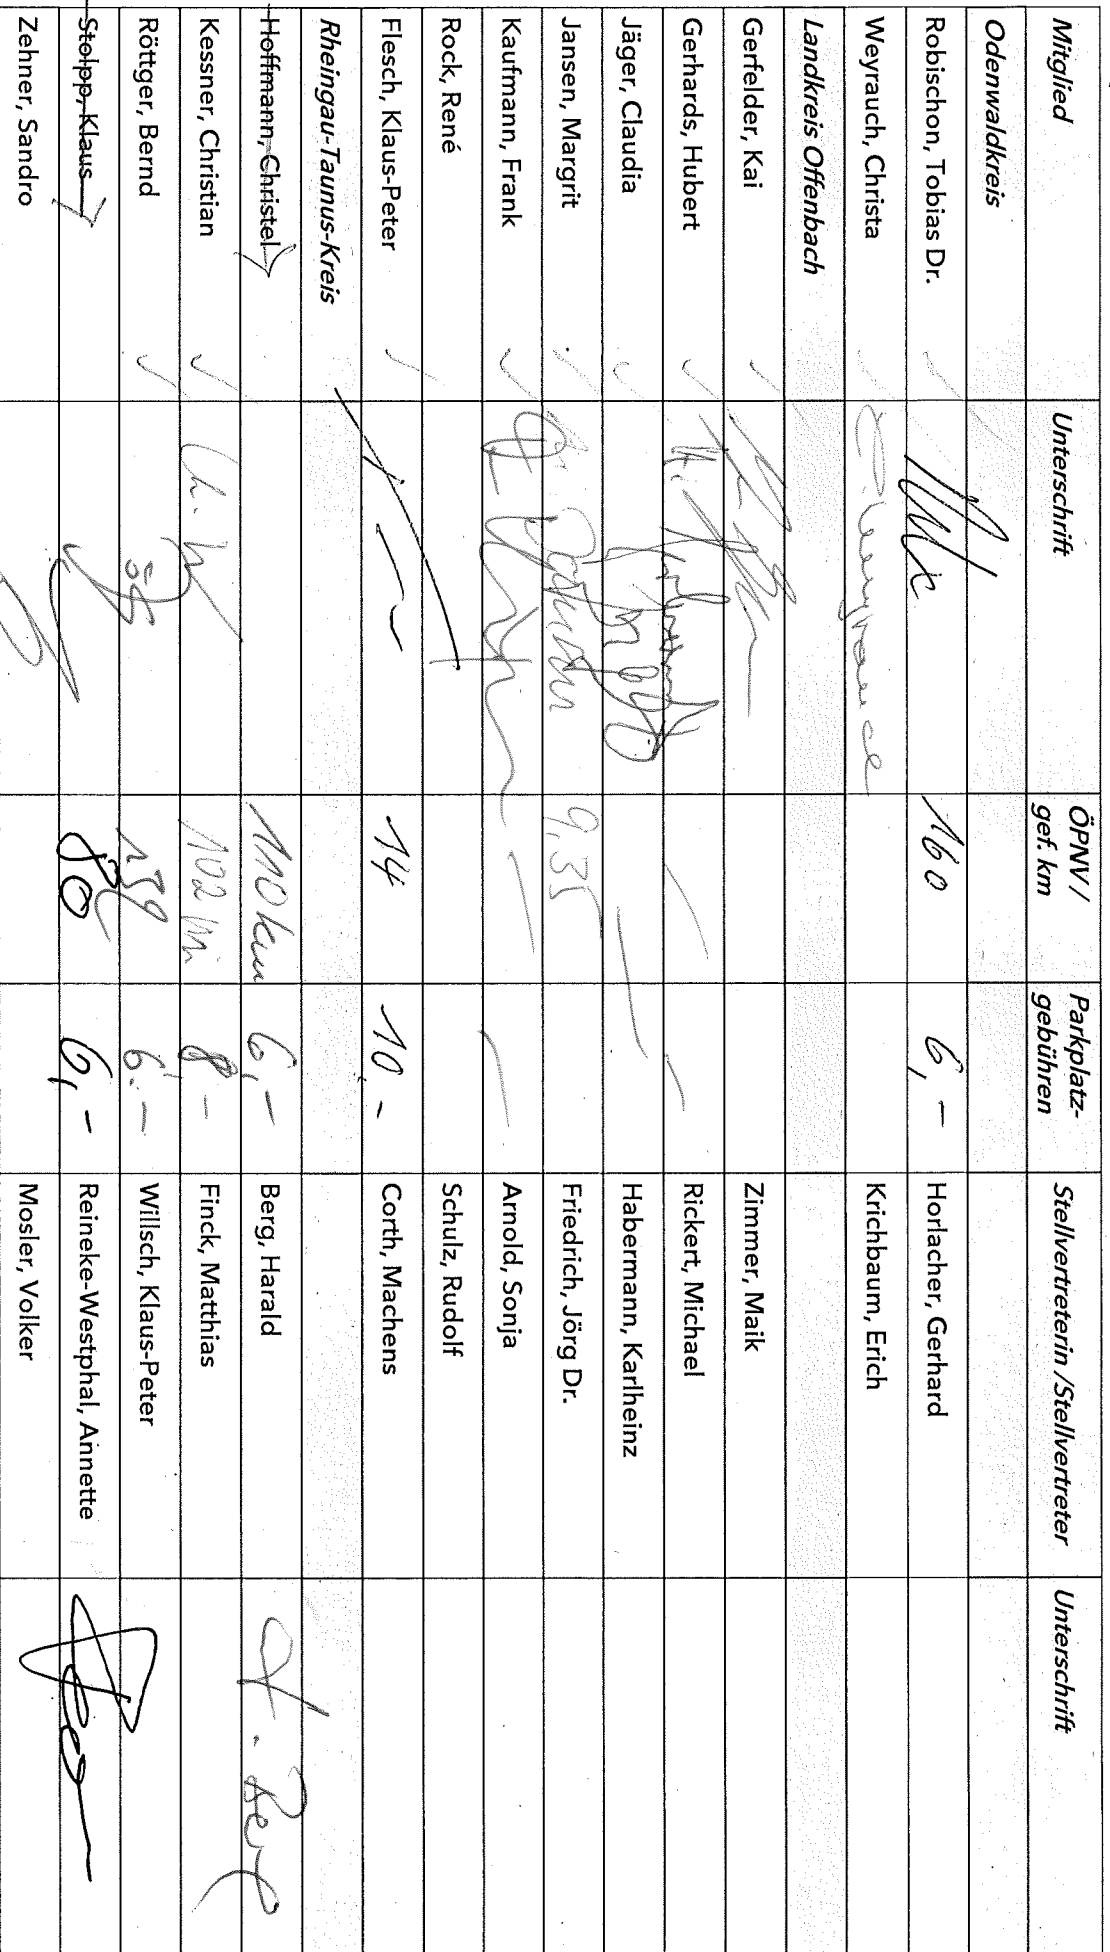 Mitglied Unterschrift ÖPNV / gef. km Parkplatz-gebühren Stellvertreterin / Stellvertreter Unterschrift
Odenwaldkreis
Robischon, Tobias Dr. 160 6,- Horlacher, Gerhard
Weyrauch, Christa Krichbaum, Erich
Landkreis Offenbach
Gerfelder, Kai Zimmer, Maik
Gerhards, Hubert Rickert, Michael
Jäger, Claudia Habermann, Karlheinz
Jansen, Margrit 9,35 Friedrich, Jörg Dr.
Kaufmann, Frank Arnold, Sonja
Rock, René Schulz, Rudolf
Flesch, Klaus-Peter 14 10,- Corth, Machens
Rheingau-Taunus-Kreis
Hoffmann, Christel 110 km 6,- Berg, Harald H. Berg
Kessner, Christian 102 km 8,- Finck, Matthias
Röttger, Bernd 6,- Willsch, Klaus-Peter
Stolpp, Klaus 80 6,- Reineke-Westphal, Annette
Zehner, Sandro Mosler, Volker